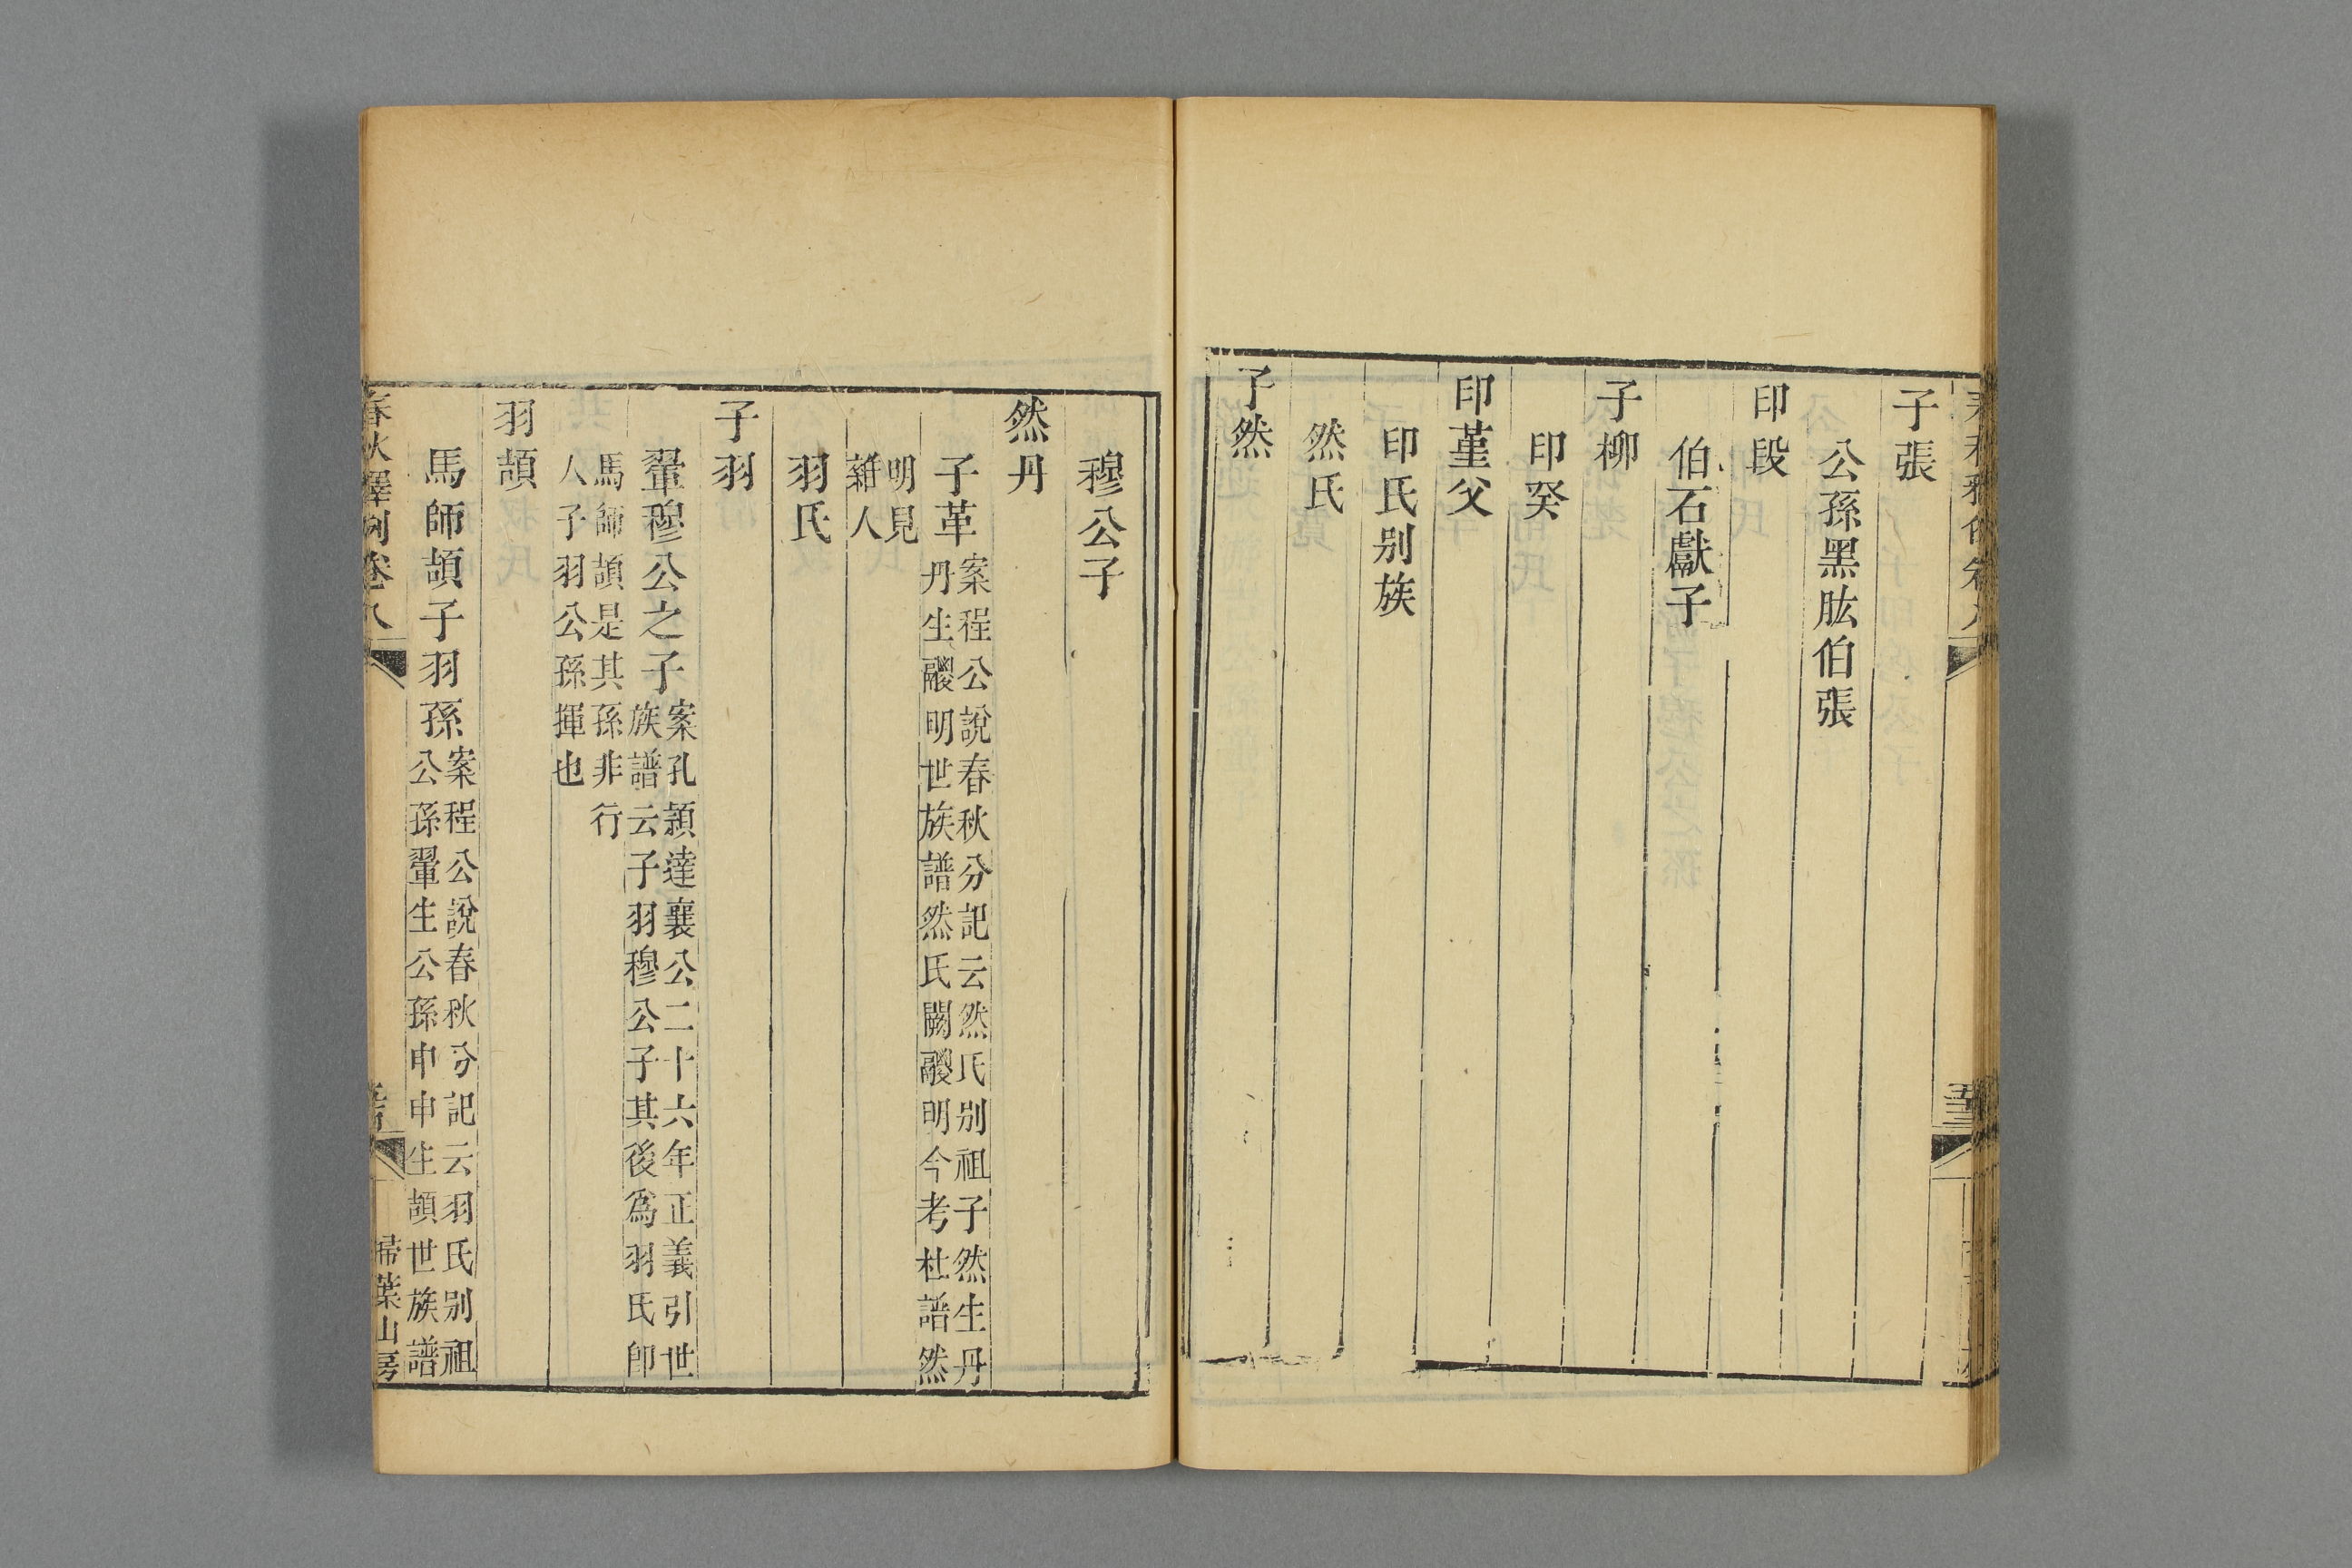 子張
公孫黑肱伯張
印段
伯石獻子
子柳
印癸
印堇父
印氏别族
然氏
子然
穆公子
然丹
子革案程公說春秋分記云然氏别祖子然生丹
丹生鬷明世族譜然氏闕鬷明今考杜譜然
明見
雜人
羽氏
子羽
翬穆公之子案孔穎達襄公二十六年正義引世
族譜云子羽穆公子其後為羽氏卽
馬師頡是其孫非行
人子羽公孫揮也
羽頡
馬師頡子羽孫案程公說春秋分記云羽氏别祖
公孫翬生公孫申申生頡世族譜
春秋釋例卷八
掃葉山房